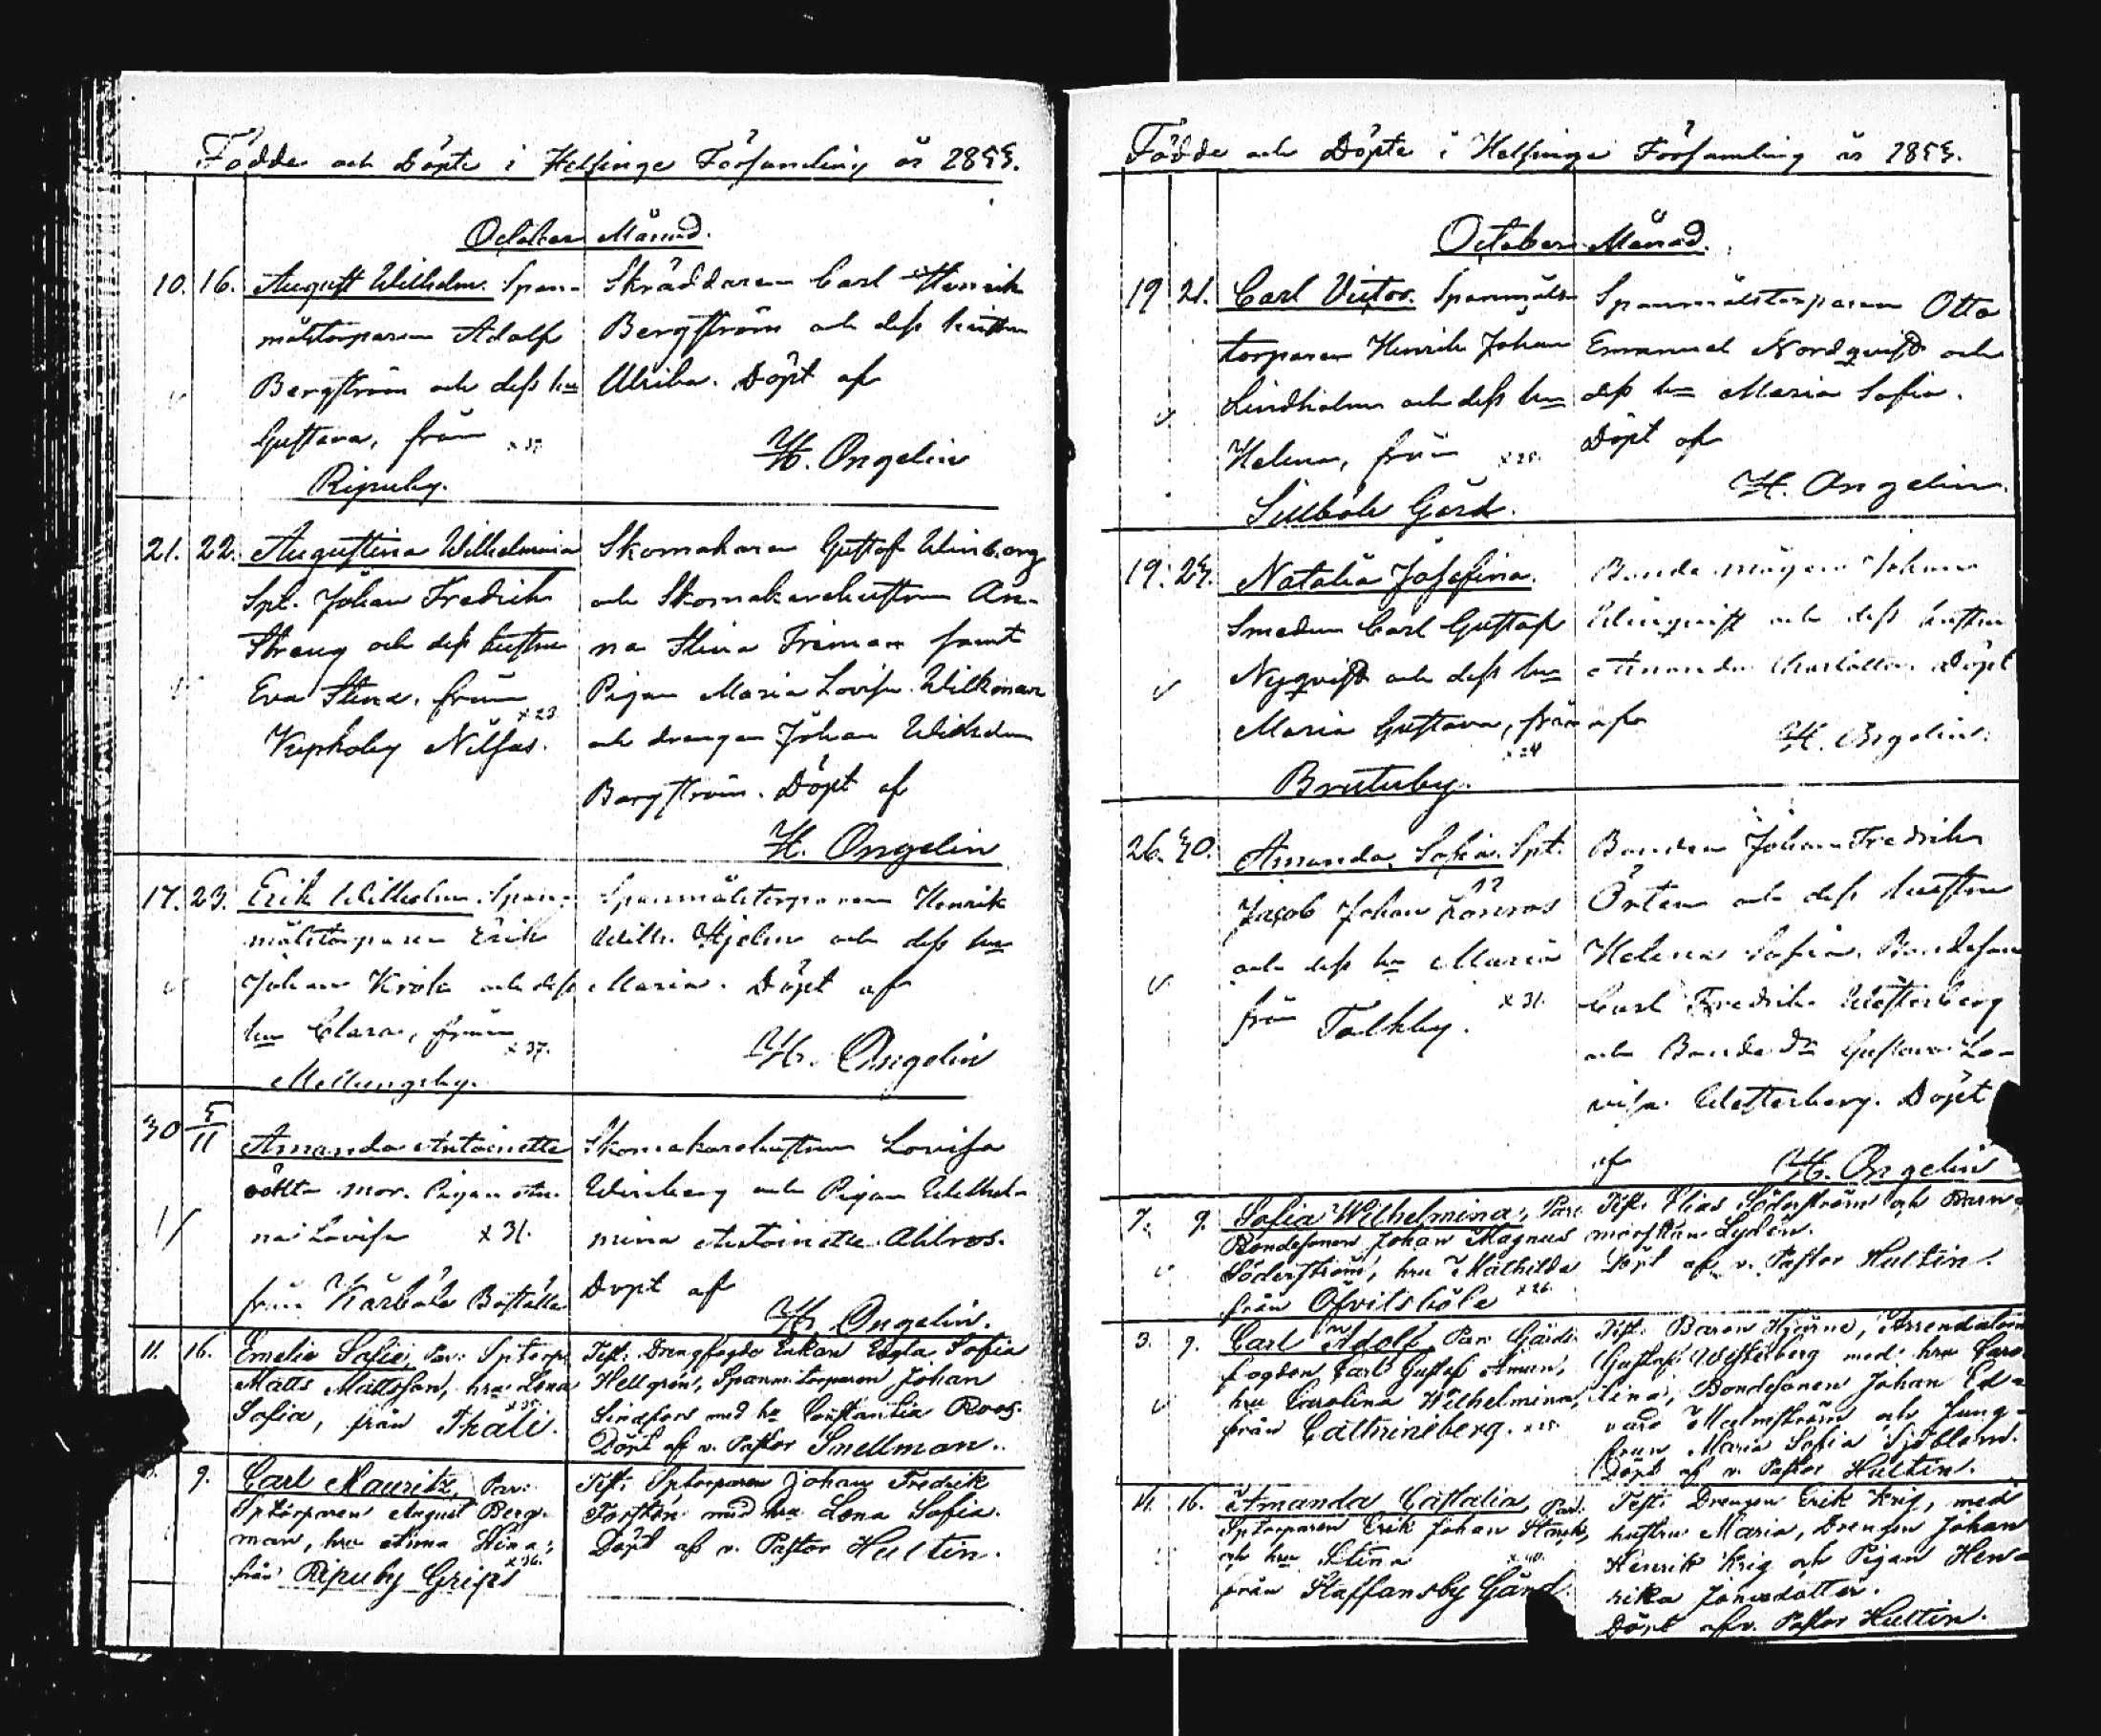 Födde och Döpte i Helsinge Församling år 1853.
October Månad.
10. 16. August Wilhelm. Span-
målstorparen Adolf
Bergström och dess hu
Gustava, från x 37.
Ripuby.
Skräddaren Carl Henrik
Bergström och dess hustru
Ulrika. Döpt af
H. Ongelin
21. 22. Augustina Wilhelmina
Spt. Johan Fredrik
Streng och dess hustru
Eva Stina, från x 23.
Nilsas.
Skomakaren Gustaf Winberg
och Skomakarehustrun An-
na Stina Friman samt
Pigan Maria Lovisa Wilkman
och drengen Johan Wilhelm
Bergström. Döpt af
H. Ongelin
17. 23. Erik Wilhelm. Span-
målstorparen Erik
Johan Krok och dess
hu Clara, från x 37.
Mellungsby.
Spanmålstorparen Henrik
Wilh. Hjelm och dess hu
Maria. Döpt af
H. Ongelin
30 3/11 Amanda Antoinette
oäkta mor. Pigan An-
na Lovisa x 31.
från Kårböle Boställe
Skomakarehustrun Lovisa
Winberg och Pigan Wilhel-
mina Antoinette Ahlroos.
Döpt af
H. Ongelin.
11. 16. Emelie Sofie, Par: Sptorp.
Matts Mattsson, hru Lena
Sofia, från Thali.
Test: Drengfogde Enkan Sofia
Hellgrén, Spanm.torparen Johan
Sinefors med hu Constantia Roos.
Döpt af v. Pastor Snellman.
9. Carl Mauritz, Par:
Sptorparen August Berg-
man, hru Anna Stina,
från Ripuby Grips x 36.
Test: Sptorparen Johan Fredrik
Forstén med hru Lena Sofia.
Döpt af v. Pastor Hultin.
Födde och Döpte i Helsinge Församling år 1853.
October Månad.
19 21. Carl Victor. Spanmåls-
torparen Henrik Johan
Lindholm och dess hu
Helena, från
Sillböle Gård.
Spanmålstorparen Otto
Emanuel Nordqvist och
dess hu Maria Sofia.
Döpt af
H. Ongelin.
19. 23. Natalia Josefina.
Smeden Carl Gustaf
Nyqvist och dess hu
Maria Gustava, från
x 24
Brutuby.
Bonde mågen Johan
Winqvist och dess hustru
Amanda Charlotta. Döpt
af
H. Ongelin.
26. 30. Amanda Sofia. Spt.
Jacob Johan Lönroos
och dess hu Maria
från Tolkby. x 31.
Bonden Johan Fredrik
Örten och dess hustru
Helena Sofia. Bondeson
Carl Fredrik Westerberg
och Bonde Dr Gustava Lo-
visa Westerberg. Döpt
af
H. Ongelin
7. 9. Sofia Wilhelmina, Par:
Bondesonen Johan Magnus
Söderström, hru Mathilda
från Öfvitsböle x 26.
Test: Elias Söderström och Barn-
morskan Lydén.
Döpt af v. Pastor Hultin.
3. 9. Carl Adolf, Par: Gårds-
fogden Carl Gustaf Aman,
hru Carolina Wilhelmina,
från Cathrineberg.
Test: Baron Hjärne, Arrendatorn
Gustaf Westerberg med hru Caro-
lina, Bondesonen Johan Ed-
vard Malmström och Jung-
frun Maria Sofia Sjöblom.
Döpt af v. Pastor Hultin.
11. 16. Amanda Castalia, Par:
Sptorparen Erik Johan
och hru Stina x 40.
från Staffansby Gård.
Test: Drengen Erik Krig, med
hustru Maria, Drengen Johan
Henrik Krig och Pigan Hen-
rika Jonasdotter.
Döpt af v. Pastor Hultin.